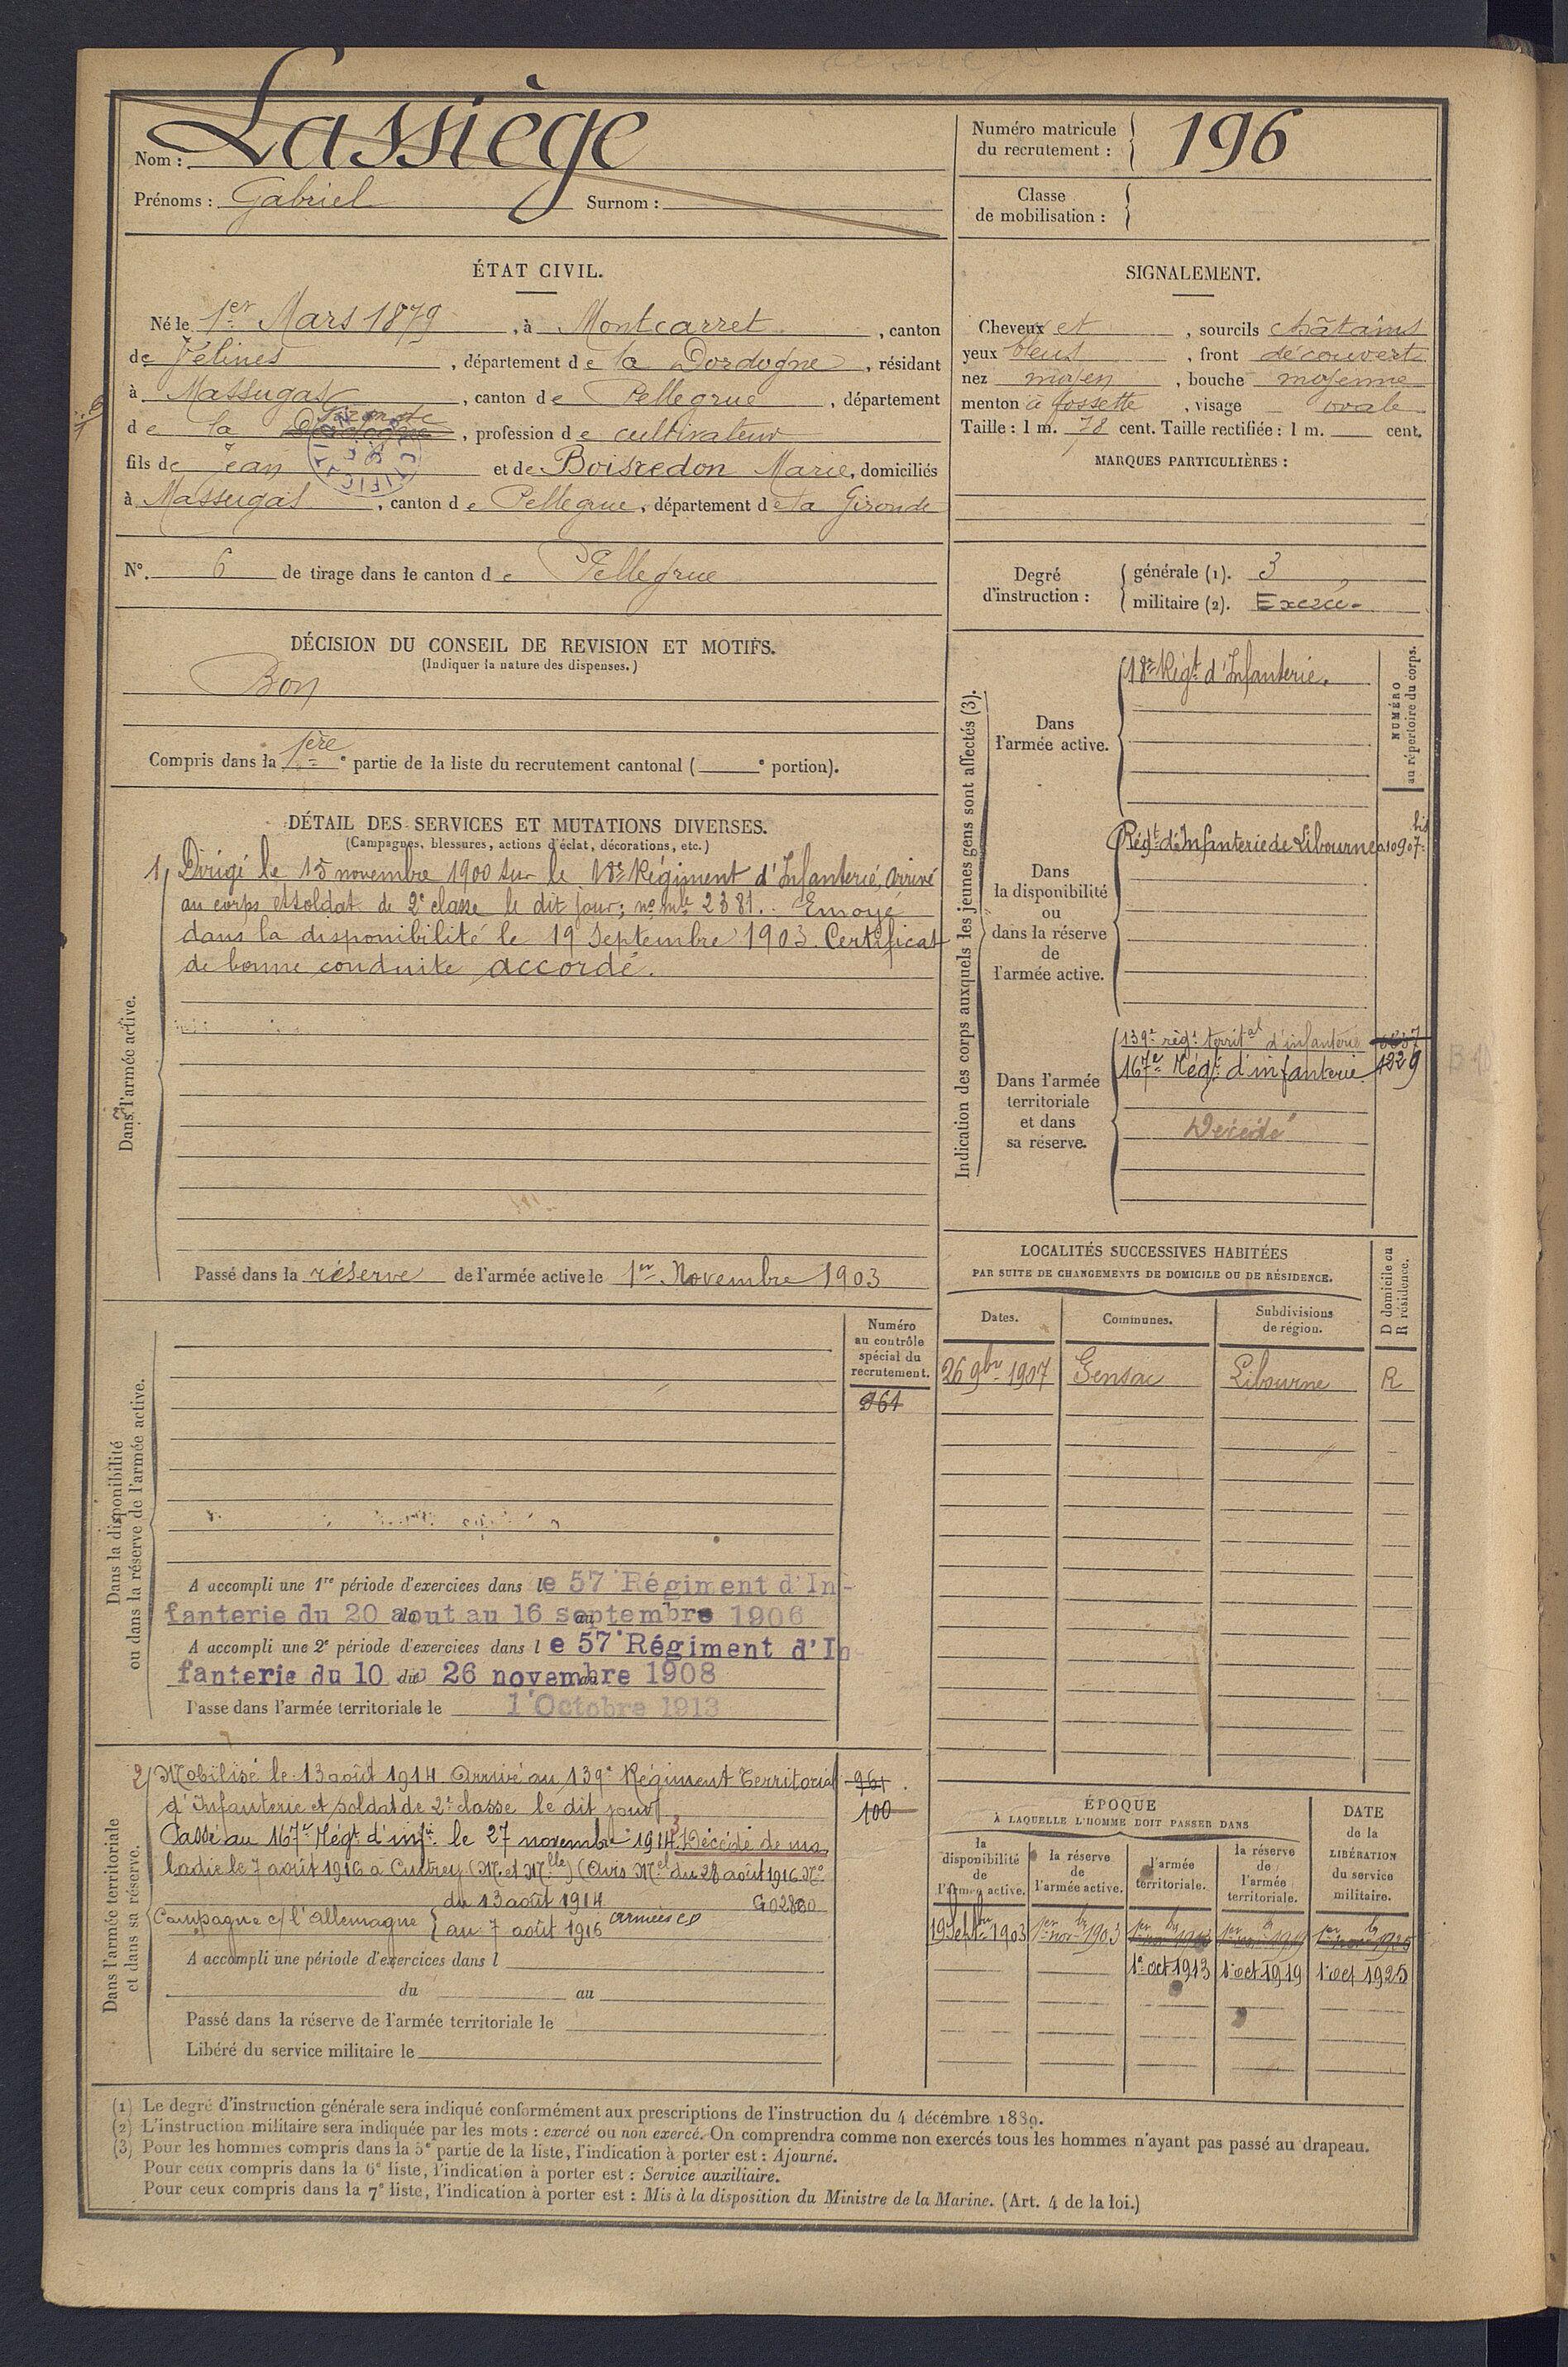 Nom : Lassiège
Prénoms : Gabriel Surnom :
Numéro matricule du recrutement : 196
Classe de mobilisation :
ÉTAT CIVIL.
Né le 1er Mars 1879, à Montcarret, canton
de Vélines, département de la Dordogne, résidant
à Massugas, canton de Pellegrue, département
de la Dordogne Gironde, profession de cultivateur
fils de Jean et de Boisredon Marie, domiciliés
à Massugas, canton de Pellegrue, département de la Gironde
N°. 6 de tirage dans le canton de Pellegrue
SIGNALEMENT.
Cheveux et , sourcils châtains
yeux bleus , front découvert
nez moyen , bouche moyenne
menton à fossette , visage ovale
Taille : 1 m. 78 cent. Taille rectifiée : 1 m. cent.
MARQUES PARTICULIÈRES :
Degré d'instruction :
générale (1). 3
militaire (2). Exercé.
DÉCISION DU CONSEIL DE REVISION ET MOTIFS.
(Indiquer la nature des dispenses.)
Bon
Compris dans la 1ère e partie de la liste du recrutement cantonal ( e portion).
DÉTAIL DES SERVICES ET MUTATIONS DIVERSES.
(Campagnes, blessures, actions d'éclat, décorations, etc.)
Dans l'armée active.
1/ Dirigé le 15 novembre 1900 sur le 18e Régiment d'Infanterie, arrivé
au corps et soldat de 2e classe le dit jour; no mle 2381. Envoyé
dans la disponibilité le 19 Septembre 1903. Certificat
de bonne conduite accordé.
Passé dans la réserve de l'armée active le 1er Novembre 1903
Indication des corps auxquels les jeunes gens sont affectés (3).
NUMÉRO au répertoire du corps.
Dans l'armée active.
18e Régt d'Infanterie.
Dans la disponibilité ou dans la réserve de l'armée active.
Régt d'Infanterie de Libourne 010907 bis
Dans l'armée territoriale et dans sa réserve.
139e régt territal d'infanterie
167e Régt d'infanterie 1229
Décédé
LOCALITÉS SUCCESSIVES HABITÉES
PAR SUITE DE CHANGEMENTS DE DOMICILE OU DE RÉSIDENCE.
Dates. Communes. Subdivisions de région. D domicile ou R résidence.
26 9bre 1907 Gensac Libourne R
Dans la disponibilité ou dans la réserve de l'armée active.
Numéro au contrôle spécial du recrutement.
961
A accompli une 1re période d'exercices dans le 57e Régiment d'In-
fanterie du 20 aout au 16 septembre 1906
A accompli une 2e période d'exercices dans le 57e Régiment d'In-
fanterie du 10 au 26 novembre 1908
Passé dans l'armée territoriale le 1er Octobre 1913
Dans l'armée territoriale et dans sa réserve.
2/ Mobilisé le 13 août 1914. Arrivé au 139e Régiment Territorial 961
d'Infanterie et soldat de 2e classe le dit jour 100
Passé au 167e Régt d'infie le 27 novembre 1914 3/ Décédé de ma
ladie le 7 août 1916 à Custrey (M. et Mlle) (Avis Mel du 28 août 1916 No
G02880
Campagne c/ l'Allemagne du 13 août 1914 au 7 août 1916 armées
A accompli une période d'exercices dans l
du au
Passé dans la réserve de l'armée territoriale le
Libéré du service militaire le
ÉPOQUE
À LAQUELLE L'HOMME DOIT PASSER DANS
la disponibilité de l'armée active. la réserve de l'armée active. l'armée territoriale. la réserve de l'armée territoriale.
DATE de la LIBÉRATION du service militaire.
19 Septbre 1903 1er nov 1903
1er oct 1913 1er oct 1919 1er oct 1925
(1) Le degré d'instruction générale sera indiqué conformément aux prescriptions de l'instruction du 4 décembre 1889.
(2) L'instruction militaire sera indiquée par les mots : exercé ou non exercé. On comprendra comme non exercés tous les hommes n'ayant pas passé au drapeau.
(3) Pour les hommes compris dans la 5e partie de la liste, l'indication à porter est : Ajourné.
Pour ceux compris dans la 6e liste, l'indication à porter est : Service auxiliaire.
Pour ceux compris dans la 7e liste, l'indication à porter est : Mis à la disposition du Ministre de la Marine. (Art. 4 de la loi.)